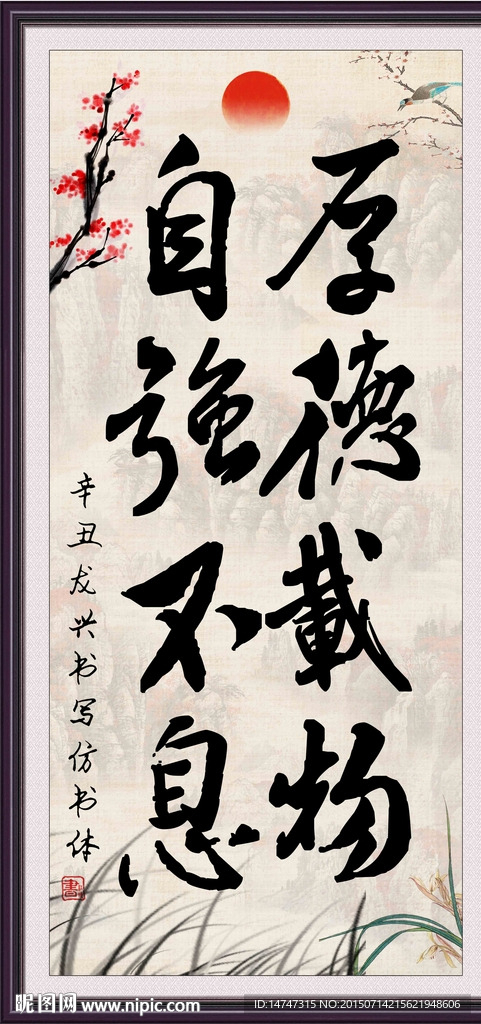 厚德載物
自強不息
辛丑龙兴书写仿书体
書
昵图网 www.nipic.com
ID:14747315 NO:20150714215621948606